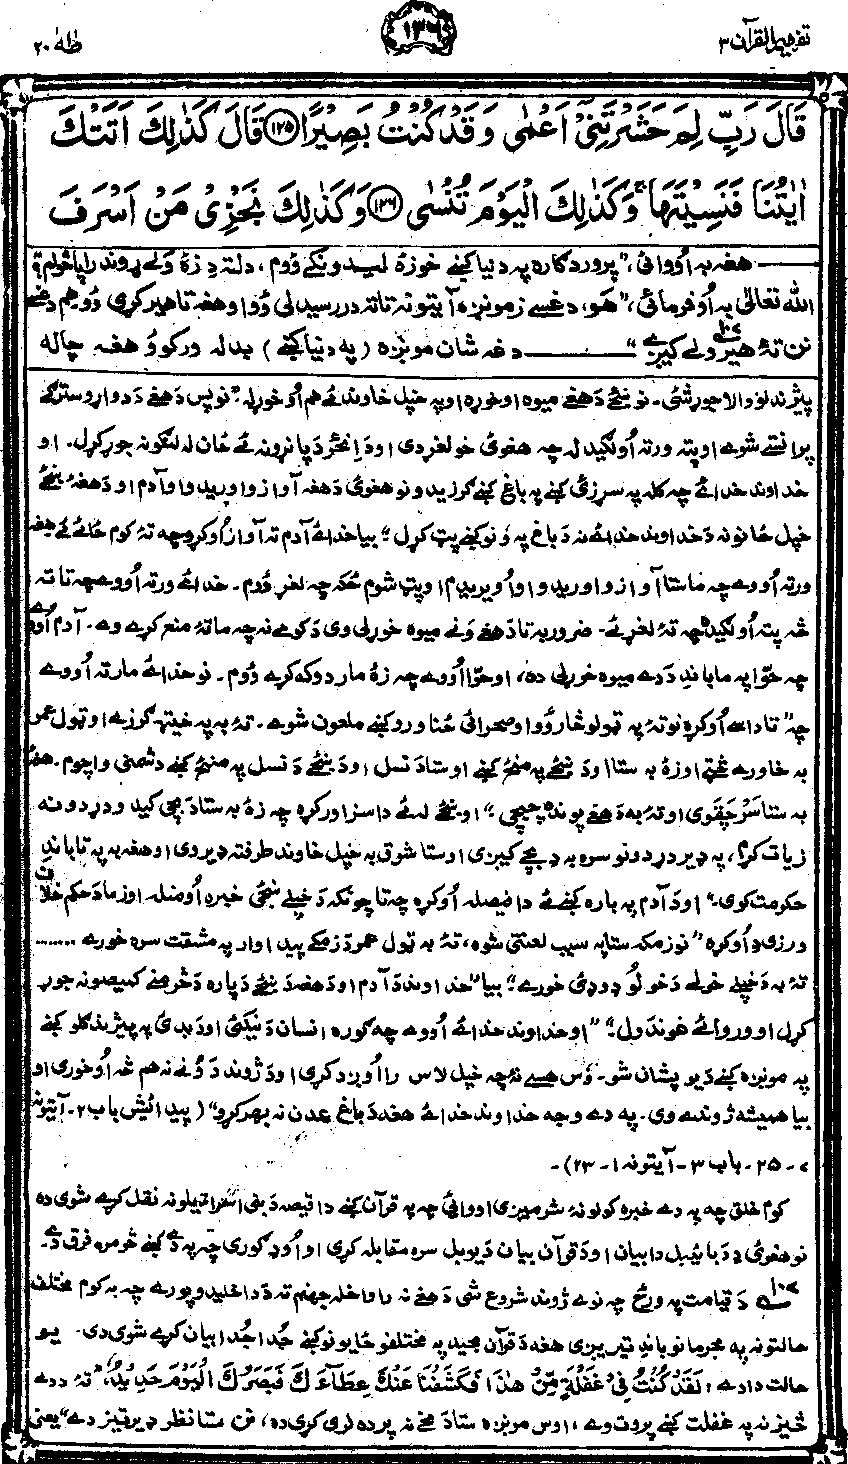 تفهیم القرآن ۳
۱۳۶
طٰهٰ ۲۰
قَالَ رَبِّ لِمَ حَشَرْتَنِیْۤ اَعْمٰی وَقَدْ كُنْتُ بَصِیْرًا ۱۲۵ قَالَ كَذٰلِكَ اَتَتْكَ
اٰیٰتُنَا فَنَسِیْتَهَا ۚ وَكَذٰلِكَ الْیَوْمَ تُنْسٰی ۱۲۶ وَكَذٰلِكَ نَجْزِیْ مَنْ اَسْرَفَ
هغه به اووائی، "پروردګاره په دنیا کښے خوزهٔ لیدونکے وُوم، دلته دِ زهٔ ولے ړوند راپاڅولم؟
الله تعالی به اوفرمائی، "هو، دغسے زمونږه آیتونه تاته در رسیدلی وُو او هغه تا هیر کړی وُو هم دغسے
نن تهٔ هیر ولے کیږے" دغه شان مونږه (په دنیا کښے) بدله ورکوو هغه چاله
پیژندلو والا جوړ شئی۔ نو ښځے دهغے میوه اوخوړه او په خپل خاوند ئے هم اوخوړله" نو پس دهغے د دواړو سترګے
پرانستے شوے او پته ورته اولګیدله چه هغوئ خو لغړ دی او د انځر د پاڼرونه ئے ځان له لنګونه جوړ کړل۔ او
خداوند خدائے چه کله په سړزئ کښے په باغ کښے ګرزیدو نو هغوئ دهغه آواز واوریدو او آدم او دهغهٔ ښځے
خپل ځانونه د خداوند خدائے نه د باغ په ونو کښے پټ کړل" بیا خدائے آدم ته آواز اوکړو چه تهٔ کوم ځائے ئے هغه
ورته اووے چه ما ستا آواز واوریدو او اویریدم او پټ شوم ځکه چه لغړ وُوم۔ خدائے ورته اووے چه تا ته
څه پته اولګیده چه تهٔ لغړ ئے۔ ضرور به تا دهغے ونے میوه خوړلی وی د کومے نه چه ما تهٔ منع کړے وے۔ آدم اووے
چه حوّا په ما باندِ ددے میوه خوړلی ده، او حوّا اووے چه زهٔ مار دوکه کړے وُوم۔ نو خدائے مار ته اووے
چه" تا داسے اوکړه نو تهٔ په ټولو څارؤو او صحرائی ځناورو کښے ملعون شوے۔ تهٔ به په خیټه ګرزے او ټول عمر
به خاورے خورے او زهٔ به ستا او د ښځے په منځ کښے او ستا د نسل او د ښځے د نسل په منځ کښے دشمنی واچوم۔ هغه
به ستا سر چقوی او تهٔ به دهغے پونده چیچی"، او ښځے له ئے دا سزا ورکړه چه زهٔ به ستا د بچی کیدو دردونه
زیات کړم، په ډیر دردونو سره به دِ بچے کیږی او ستا شوق به خپل خاوند طرف ته ډیر وی او هغه به په تا باندِ
حکومت کوی۔" او د آدم په باره کښے ئے دا فیصله اوکړه چه تا چونکه د خپلے ښځے خبره اومنله او زما د حکم خلاف
ورزی دِ اوکړه" نو زمکه ستا په سبب لعنتی شوه، تهٔ به ټول عمر د زمکے پیداوار په مشقت سره خورے ........
تهٔ به د خپلے خولے د خولو ډوډئ خورے"؛ بیا "خداوند د آدم او دهغه د ښځے دپاره د څرمنے کمیصونه جوړ
کړل او ور وائے غوندول" "او خداوند خدائے اووے چه ګوره انسان د نیکئ او د بدئ په پیژندګلو کښے
په مونږه کښے د یو پشان شو۔ وس هسے نهٔ چه خپل لاس را اوږد کړی او د ژوند د ونے نه هم څهٔ اوخوری او
بیا همیشه ژوندے وی۔ په دے وجه خداوند خدائے هغه د باغ عدن نه بهر کړو" (پیدائیش باب ۲۔ آیتونه
۷۔۲۵۔ باب ۳۔ آیتونه ۱۔ ۲۳)۔
کوم خلق چه په دے خبره کولو نهٔ شرمیږی اووائی چه په قرآن کښے دا قیصه د بنی اسرائیلو نه نقل کړے شوی ده
نو هغوئ دِ د بائیبل دا بیان او د قرآن بیان د یو بل سره مقابله کړی او اوګوری چه په دے کښے څومره فرق دے۔
د قیامت په ورځ چه نوے ژوند شروع شی دهغے نه را واخله جهنم ته د داخلیدو پورے چه به کوم مختلف
حالتونه په مجرمانو باندِ تیریږی هغه د قرآن مجید په مختلفو ځایونو کښے جُدا جُدا بیان کړے شوی دی۔ یو
حالت دا دے: لَقَدْ كُنْتَ فِیْ غَفْلَةٍ مِّنْ هٰذَا فَكَشَفْنَا عَنْكَ غِطَآءَكَ فَبَصَرُكَ الْیَوْمَ حَدِیْدٌ، "تهٔ ددے
څیز نه په غفلت کښے پروت وے، اوس مونږه ستا د مخے نه پرده لرې کړی ده، نن ستا نظر ډیر تیز دے" یعنی